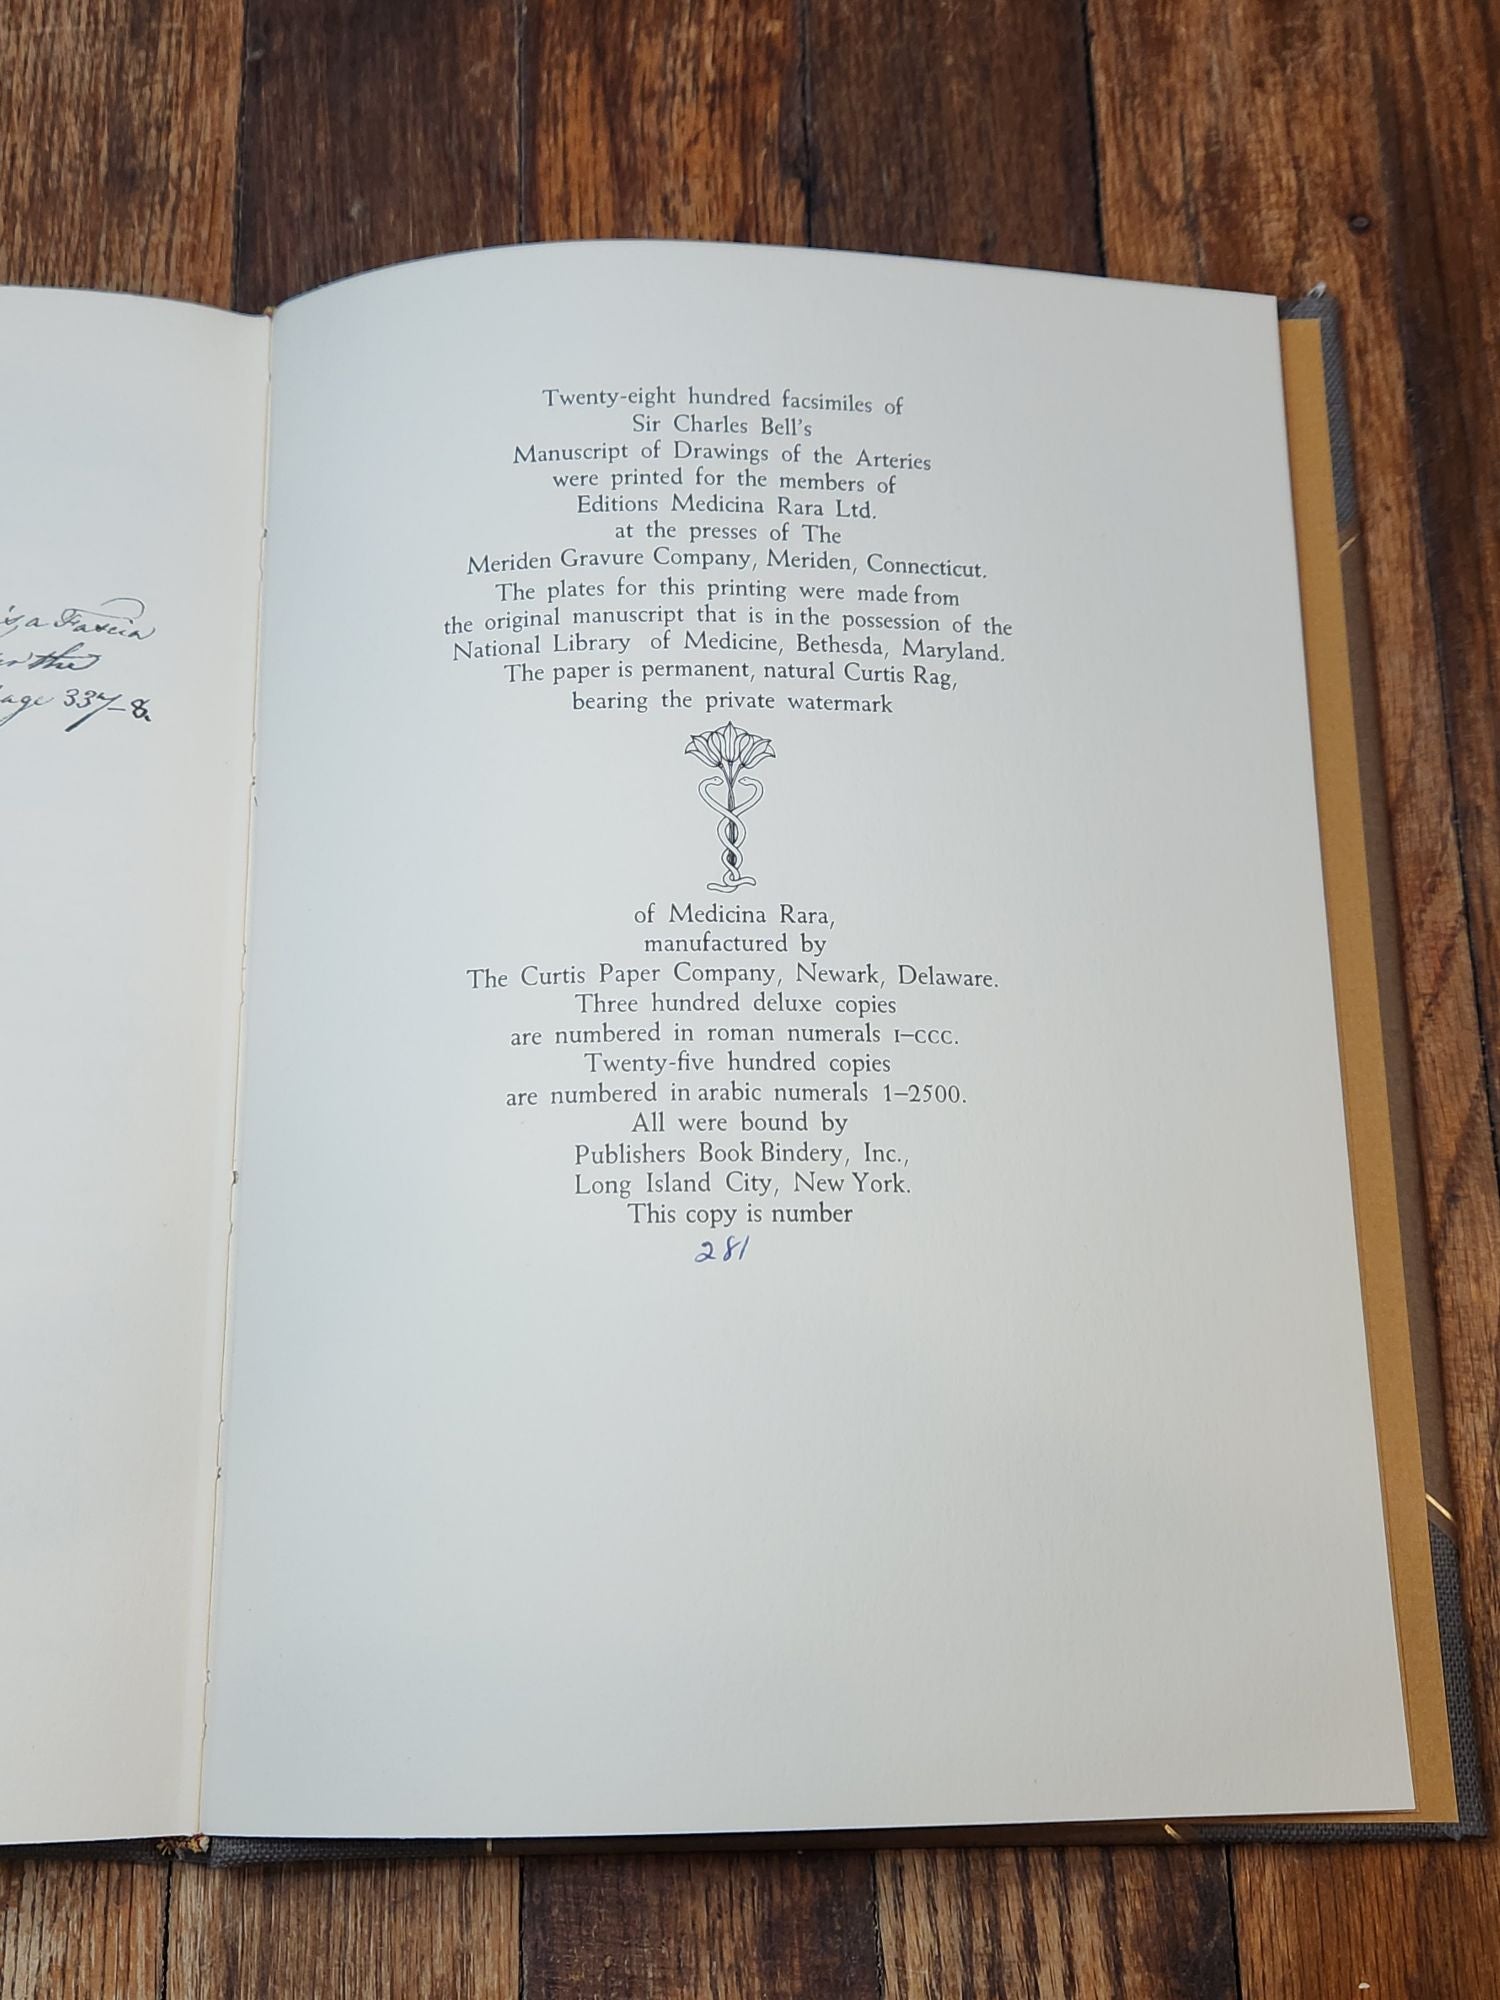 is a Fascia
the
page 337–8.
Twenty-eight hundred facsimiles of
Sir Charles Bell's
Manuscript of Drawings of the Arteries
were printed for the members of
Editions Medicina Rara Ltd.
at the presses of The
Meriden Gravure Company, Meriden, Connecticut.
The plates for this printing were made from
the original manuscript that is in the possession of the
National Library of Medicine, Bethesda, Maryland.
The paper is permanent, natural Curtis Rag,
bearing the private watermark
of Medicina Rara,
manufactured by
The Curtis Paper Company, Newark, Delaware.
Three hundred deluxe copies
are numbered in roman numerals I–CCC.
Twenty-five hundred copies
are numbered in arabic numerals 1–2500.
All were bound by
Publishers Book Bindery, Inc.,
Long Island City, New York.
This copy is number
281